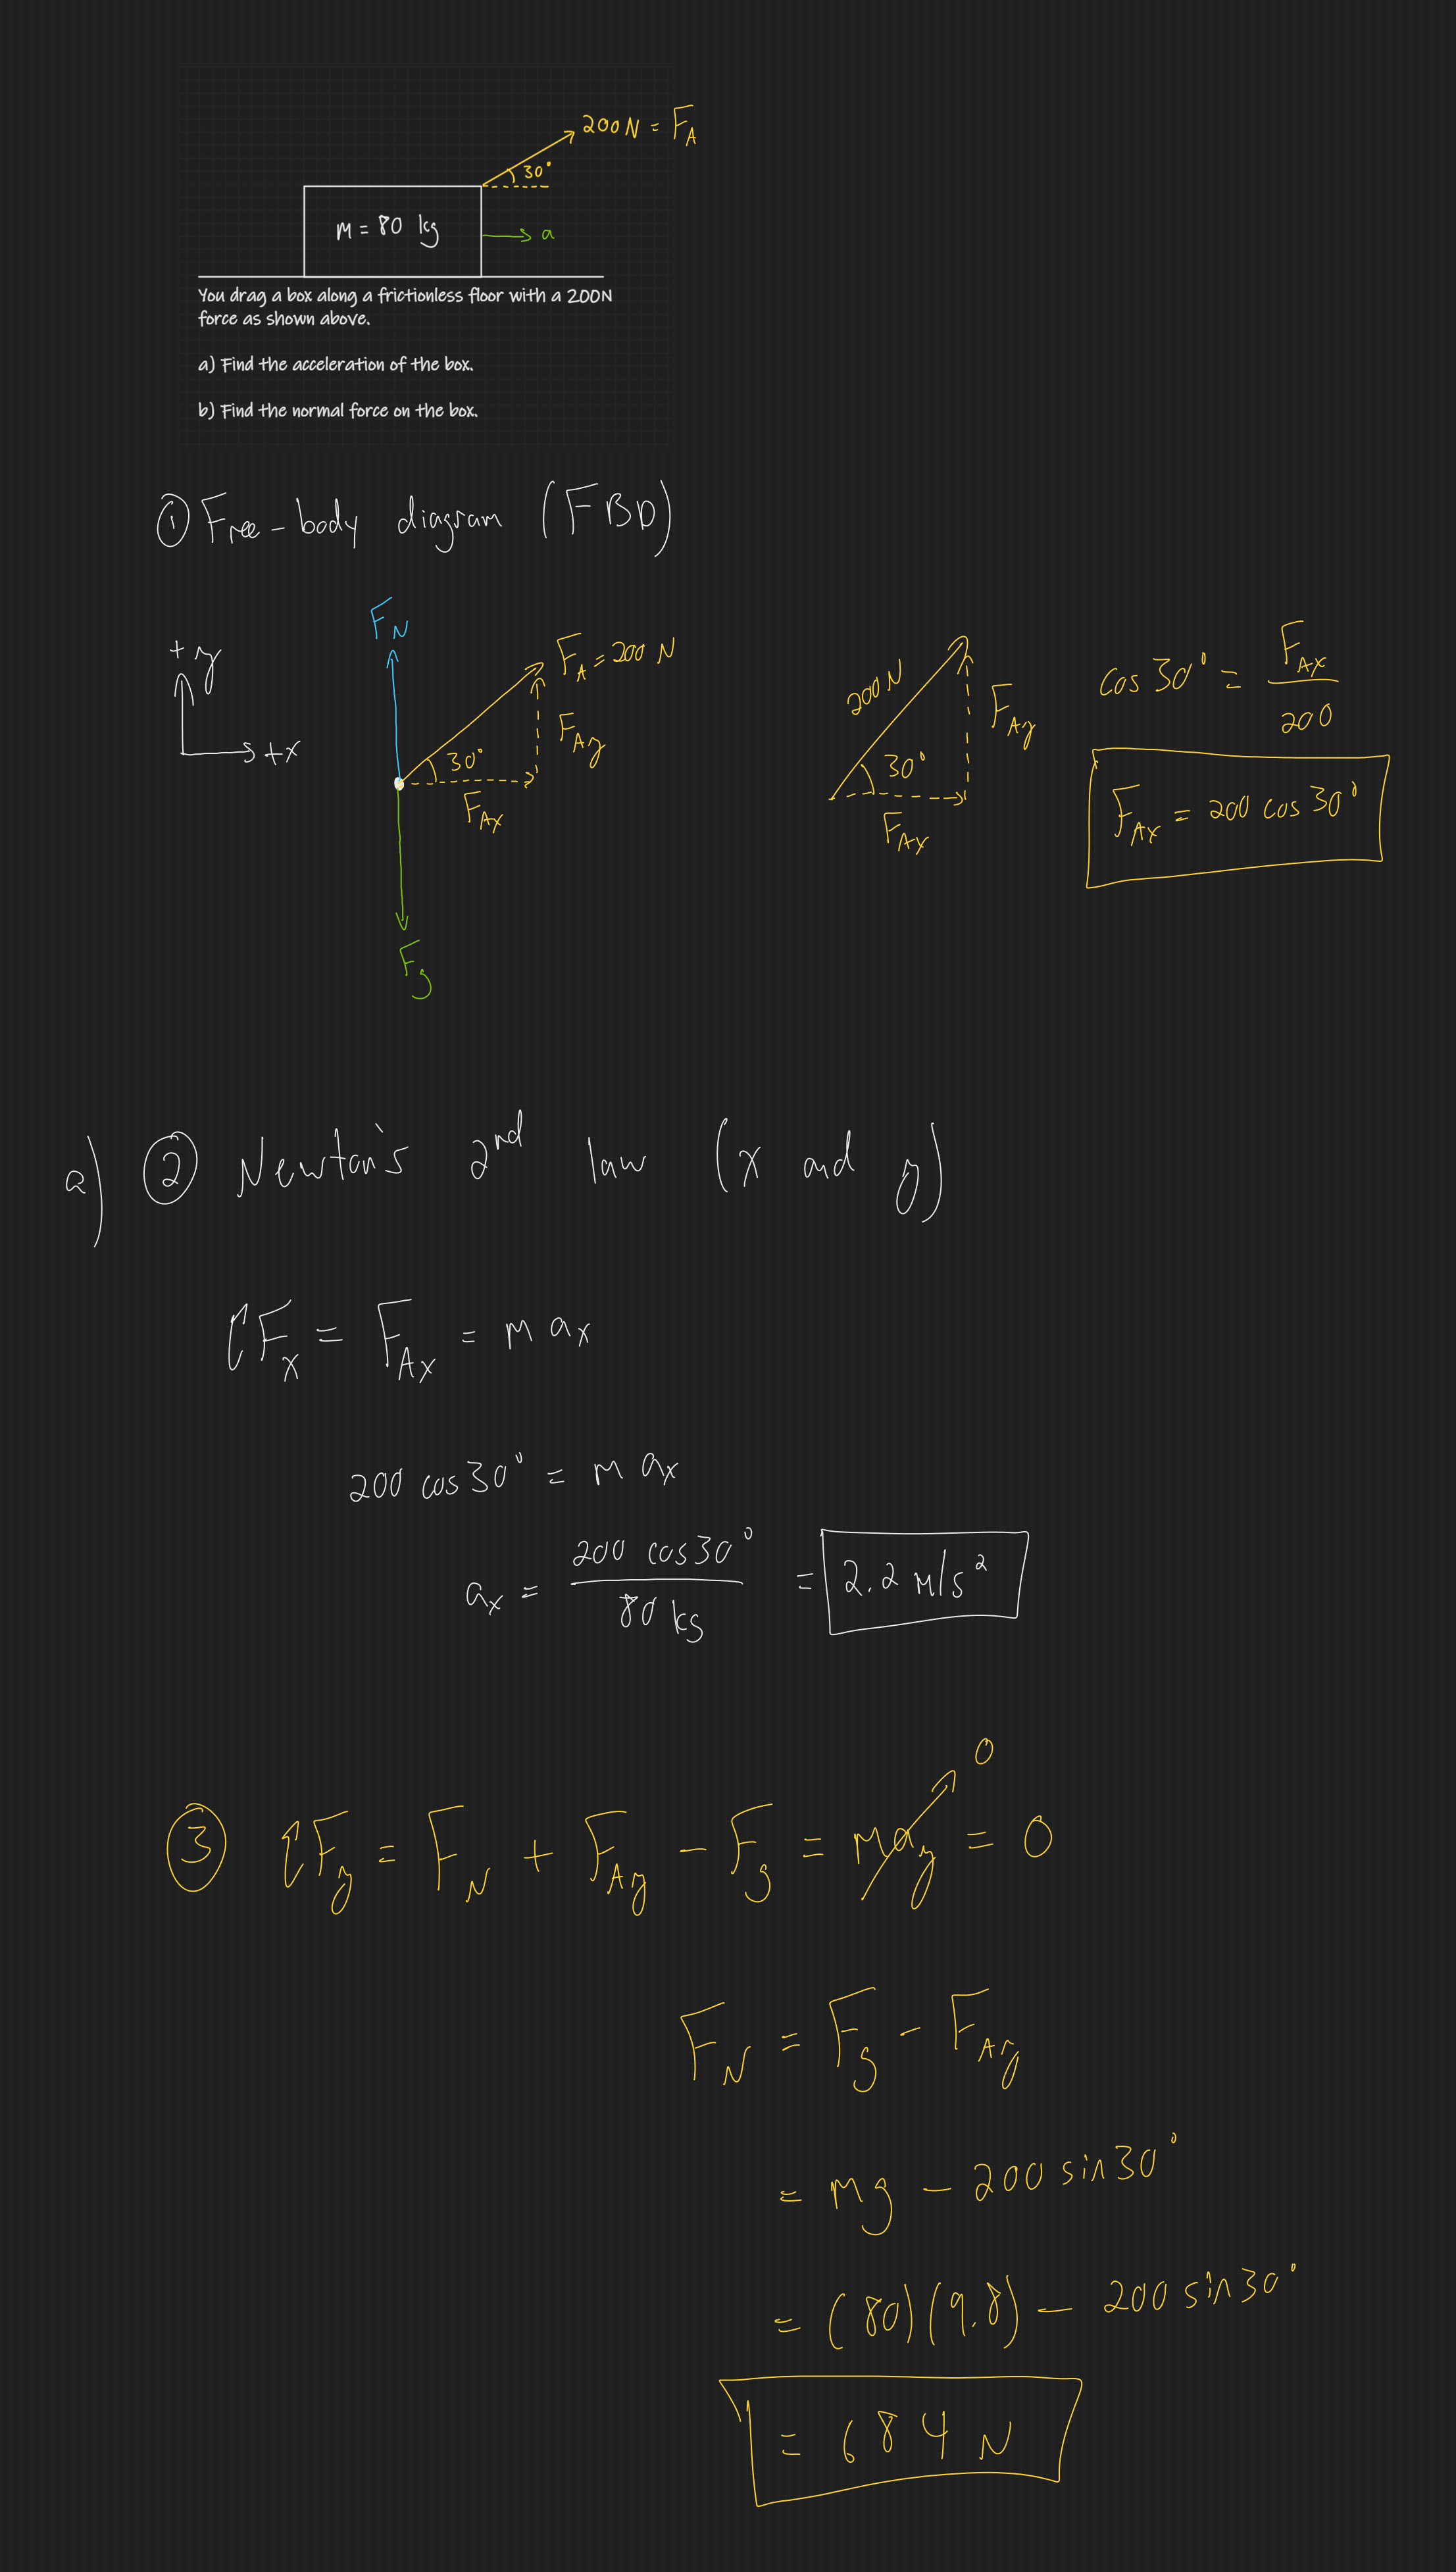 200 N = F_A
30°
m = 80 kg
a
You drag a box along a frictionless floor with a 200N
force as shown above.
a) Find the acceleration of the box.
b) Find the normal force on the box.
① Free-body diagram (FBD)
+y
+x
F_N
F_A = 200 N
F_Ay
30°
F_Ax
F_g
200 N
F_Ay
30°
F_Ax
cos 30° = F_Ax / 200
F_Ax = 200 cos 30°
a) ② Newton's 2nd law (x and y)
ΣF_x = F_Ax = m a_x
200 cos 30° = m a_x
a_x = 200 cos 30° / 80 kg = 2.2 m/s²
③ ΣF_y = F_N + F_Ay - F_g = m a_y = 0
0
F_N = F_g - F_Ay
= mg - 200 sin 30°
= (80)(9.8) - 200 sin 30°
= 684 N